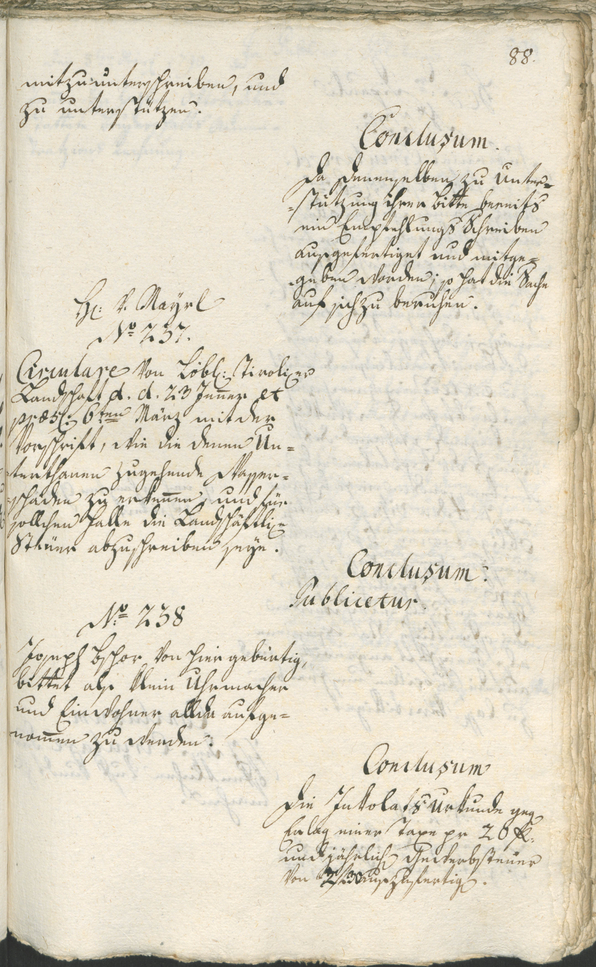 88.
mitzuunterschreiben, und
zu unterstützen.
Conclusum.
Da denenselben zu Unter-
stützung ihrer Bitte bereits
ein Empfehlungs Schreiben
ausgefertiget und mitge-
geben worden; so hat die Sache
auf sich zu beruhen.
H: v. Mayrl
No 237.
Circulare von Löbl: Tiroliser
Landschaft d. d. 23 Jenner et
præs: 6ten März mit der
Vorschrift, wie die denen Un-
terthanen zugehende Wasser-
schäden zu erkennen, und für
sollchen Falle die Landschäftli-
Steuer abzuschreiben seye.
Conclusum:
Publicetur.
No 238
Joseph Bschor von hier gebürtig,
bittet als Klein Uhrmacher
und Einwohner allda aufge-
nommen zu werden.
Conclusum
Die Inkolats Urkunde geg
Erlag einer Taxe pr 20 f.
und jährlich Gewerbsteuer
von auszufertig.